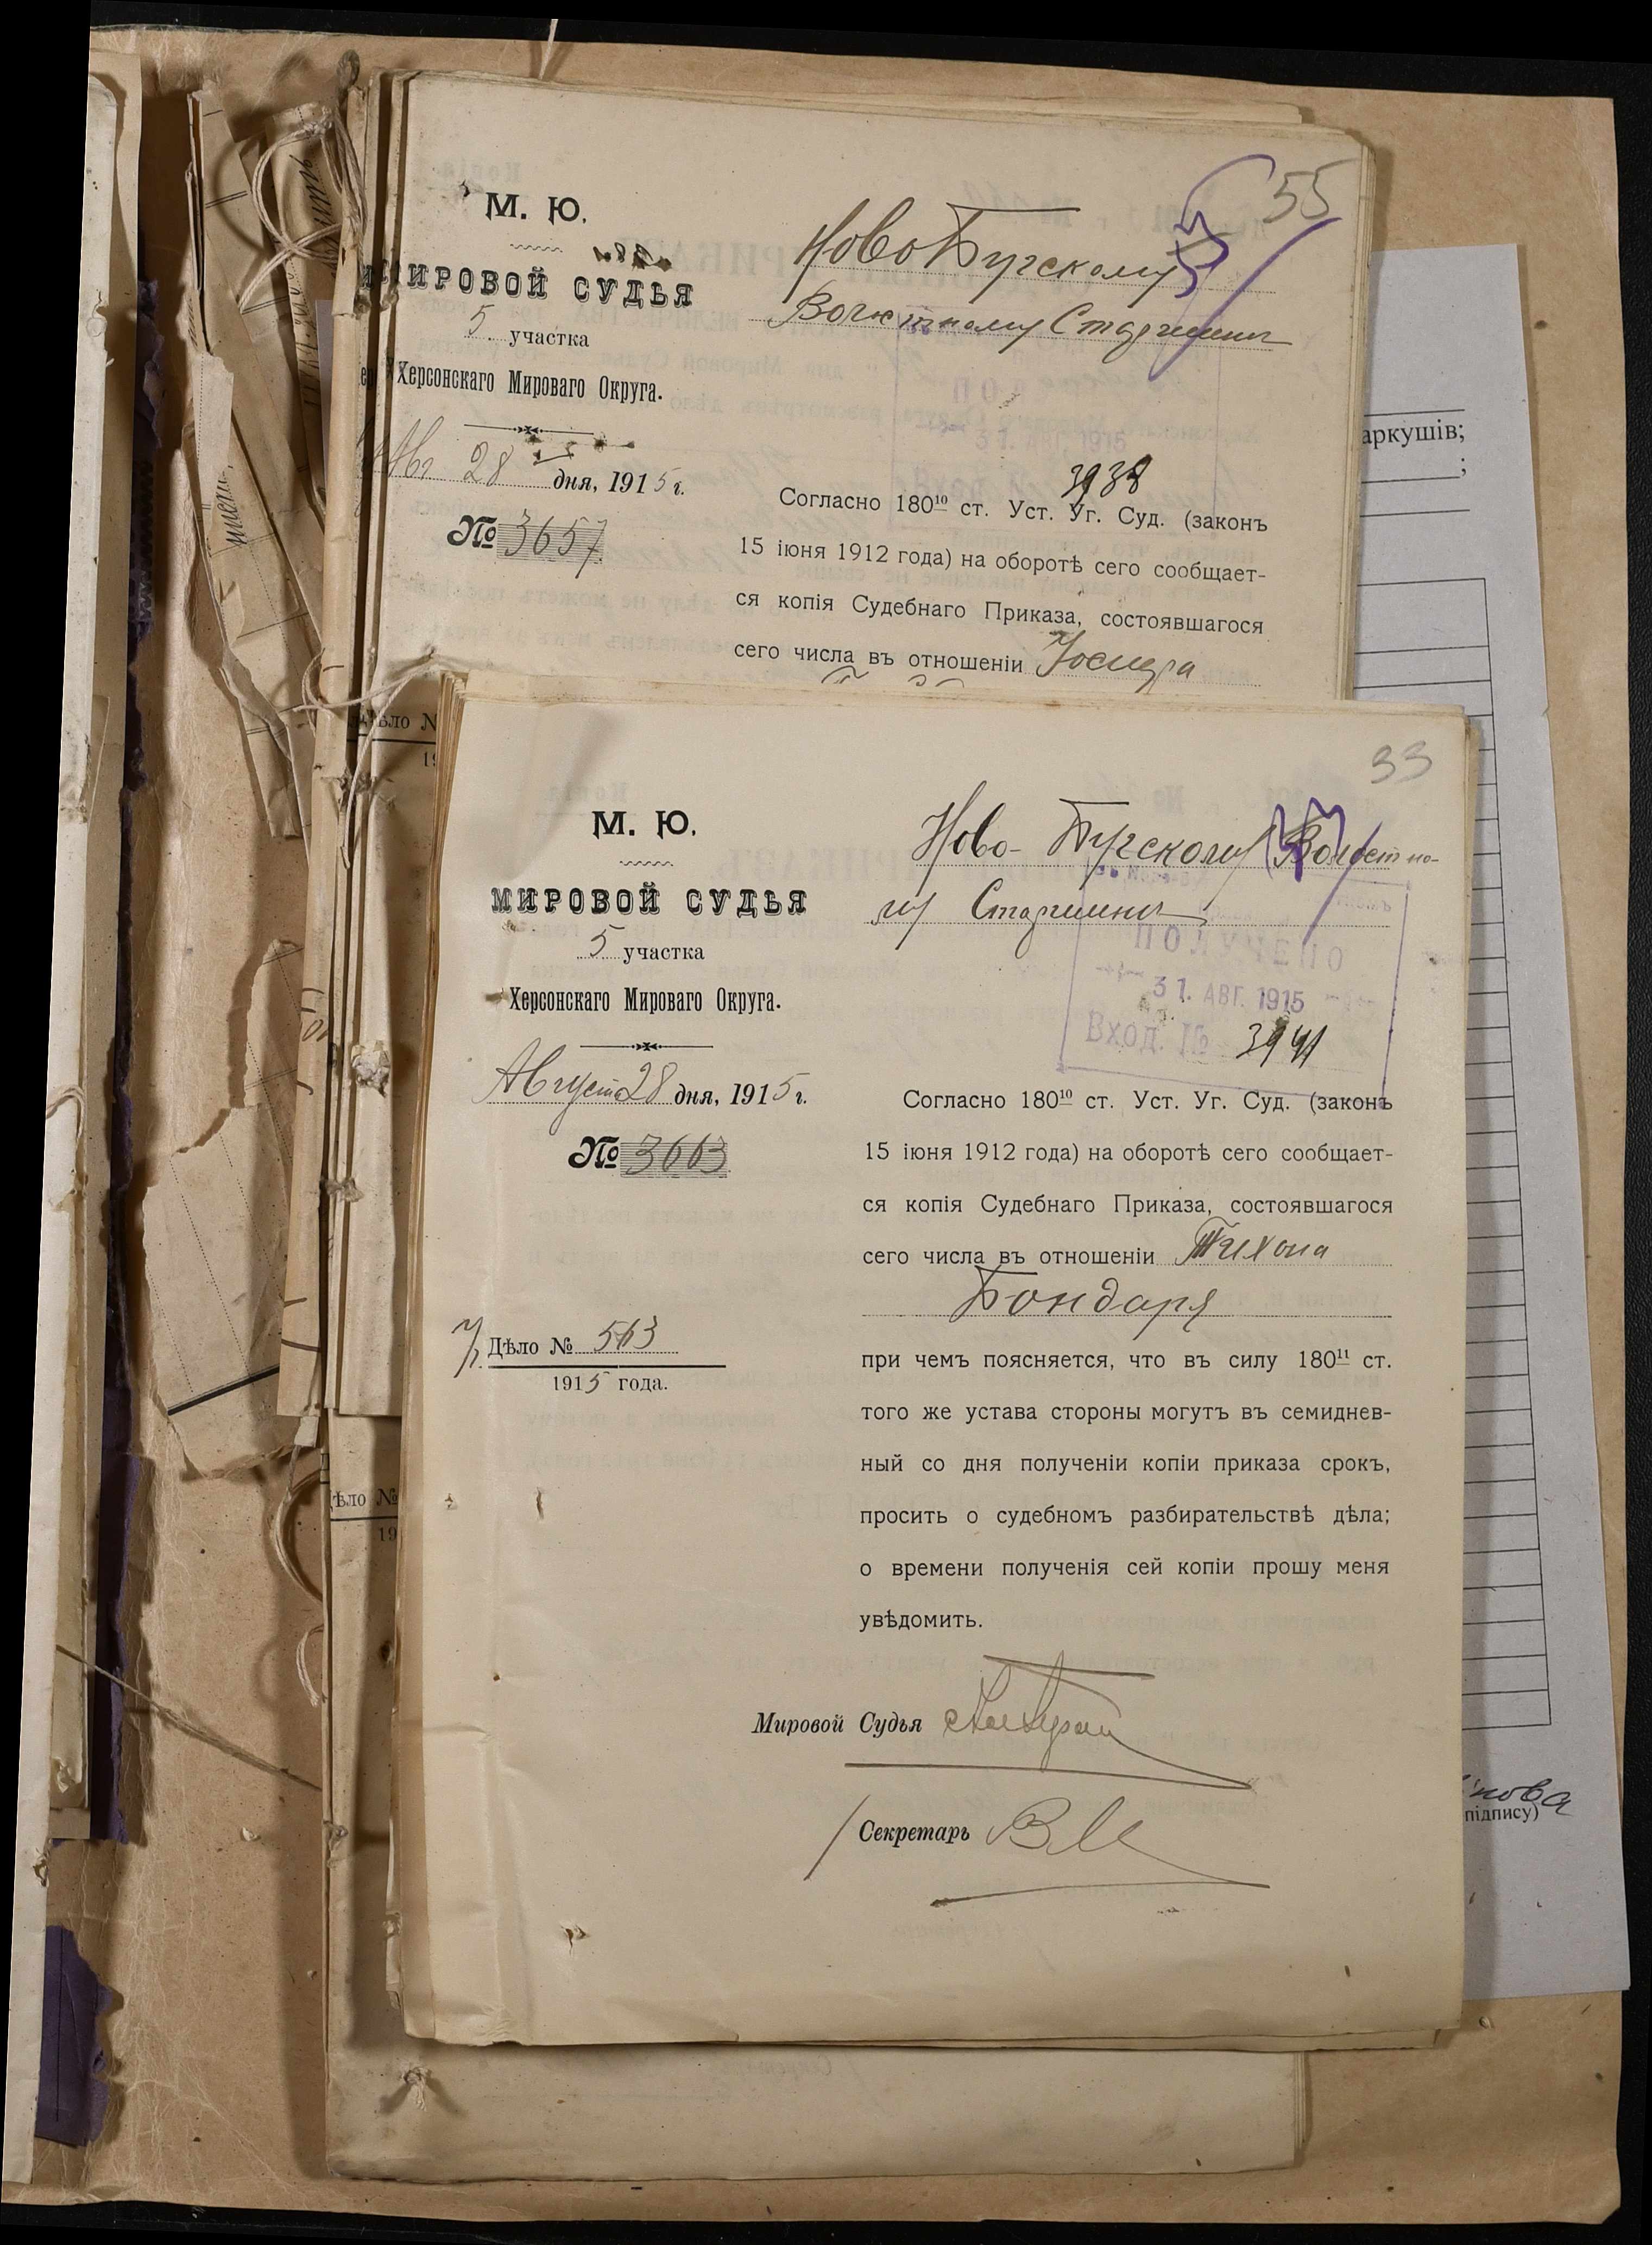 55
М. Ю.
МИРОВОЙ СУДЬЯ
5 участка
Херсонскаго Мироваго Округа.
Авг 28 дня, 1915 г.
№ 3657
НовоБугскому
Волостному Старшинѣ
31. 1915
3938
Согласно 180¹⁰ ст. Уст. Уг. Суд. (законъ
15 іюня 1912 года) на оборотѣ сего сообщает-
ся копія Судебнаго Приказа, состоявшагося
сего числа въ отношеніи
33
М. Ю.
МИРОВОЙ СУДЬЯ
5 участка
Херсонскаго Мироваго Округа.
Августа 28 дня, 1915 г.
№ 3663
Дѣло № 563
1915 года.
Ново-Бугскому Волостно-
му Старшинѣ
ПОЛУЧЕНО
31. АВГ. 1915
Вход. № 3941
Согласно 180¹⁰ ст. Уст. Уг. Суд. (законъ
15 іюня 1912 года) на оборотѣ сего сообщает-
ся копія Судебнаго Приказа, состоявшагося
сего числа въ отношеніи Тихона
Бондаря
при чемъ поясняется, что въ силу 180¹¹ ст.
того же устава стороны могутъ въ семиднев-
ный со дня полученіи копіи приказа срокъ,
просить о судебномъ разбирательствѣ дѣла;
о времени полученія сей копіи прошу меня
увѣдомить.
Мировой Судья
Секретарь
Дѣло №
19
ѣло №
19
аркушів;
;
нова
підпису)